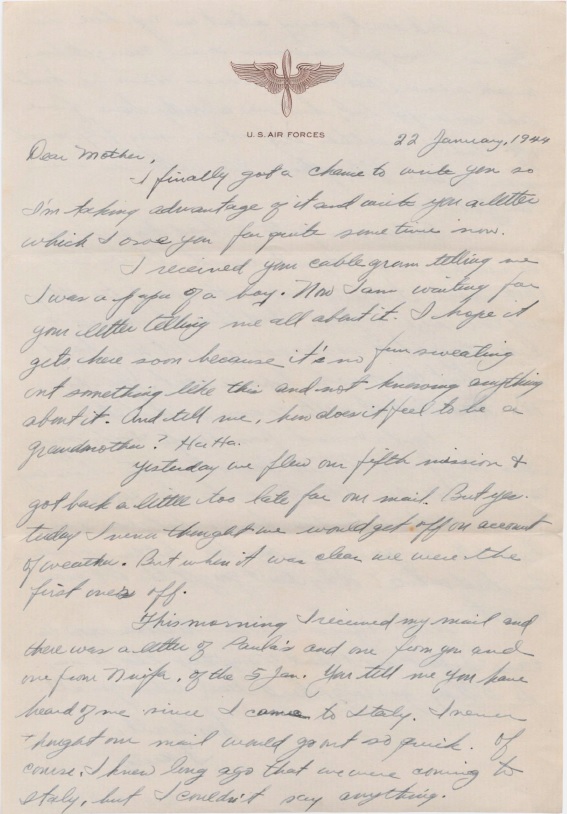 U.S. AIR FORCES
22 January, 1944
Dear Mother,
I finally got a chance to write you so
I'm taking advantage of it and write you a letter
which I owe you for quite some time now.
I received your cablegram telling me
I was a papa of a boy. Now I am waiting for
your letter telling me all about it. I hope it
gets here soon because it's no fun sweating
out something like this and not knowing anything
about it. And tell me, how does it feel to be a
grandmother? Ha Ha.
Yesterday we flew our fifth mission &
got back a little too late for our mail. But
today I never thought we would get off on account
of weather. But when it was clear we were the
first ones off.
This morning I received my mail and
there was a letter of Paula's and one from you and
one from of the 5 Jan. You tell me you have
heard of me since I came to Italy. I never
thought our mail would go out so quick. Of
course, I knew long ago that we were coming to
Italy, but I couldn't say anything.